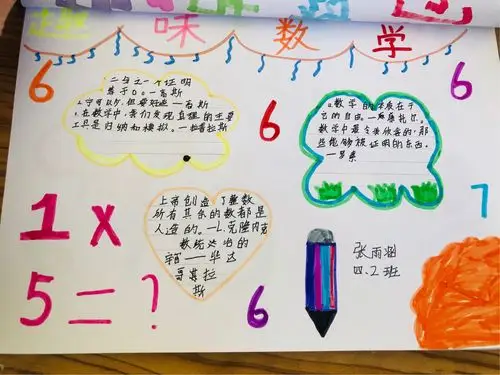 趣味数学
6
二分之一个证明
等于0。—高斯
2、宁可少,但要好—高斯
3、在数学中,我们发现真理的主要
工具是归纳和模拟。—拉普拉斯
6
6
1、数学的本质在于
它的自由。—康扎尔。
数学中最令我欣喜的,那
些能够被证明的东西。
—罗素
7
1 x
5 = ?
上帝创造了整数
所有其余的数都是
人造的。—L.克隆内克
数统治着
宇宙——毕达
哥拉
斯
6
张雨涵
四.2班